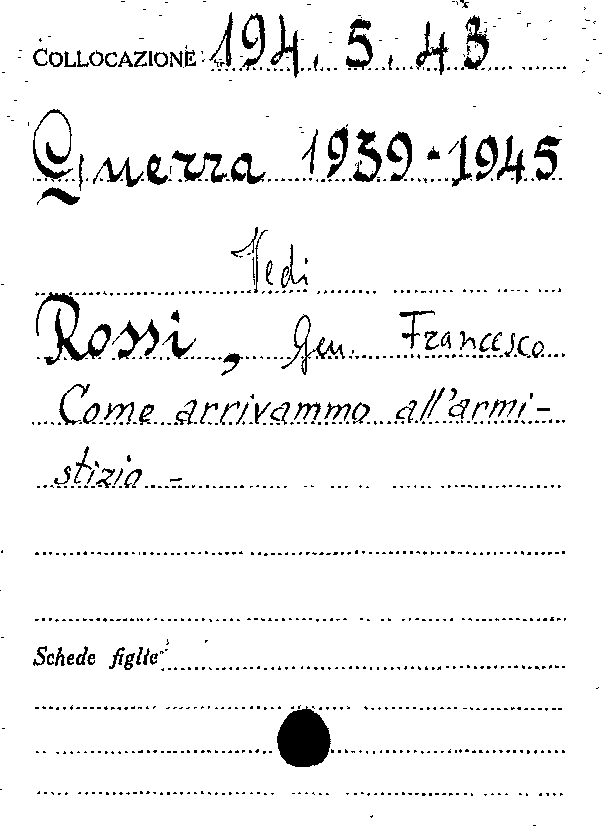 COLLOCAZIONE 194.5.43
Guerra 1939-1945
Vedi
Rossi, Gen. Francesco
Come arrivammo all'armi-
stizio -
Schede figlie